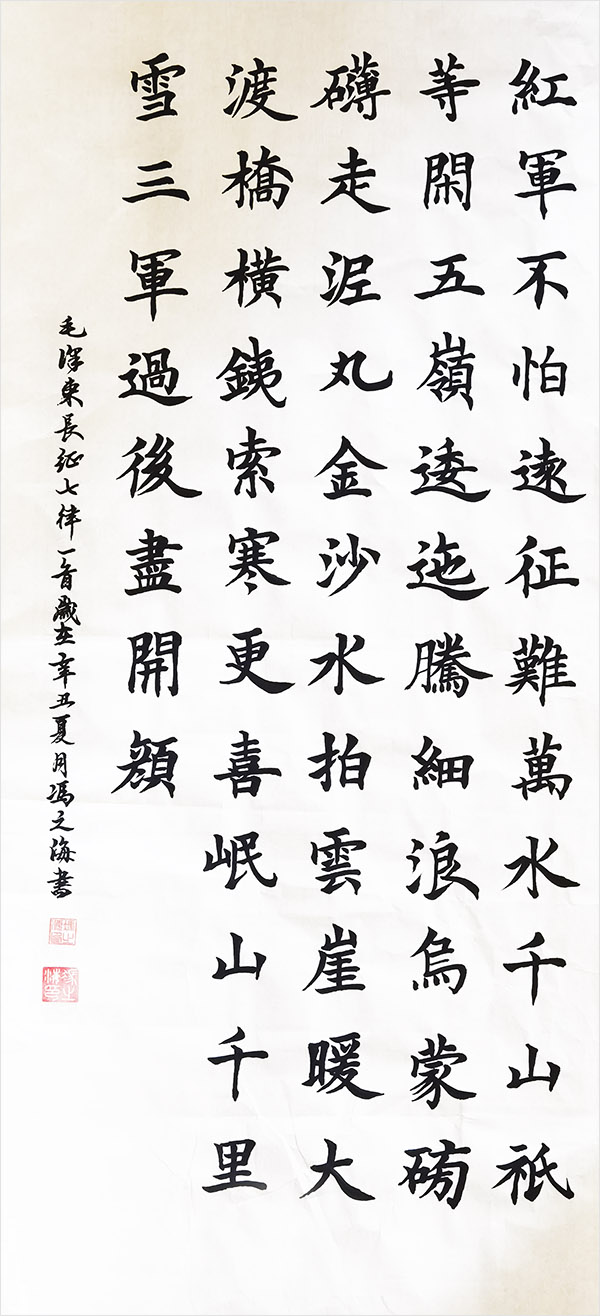 紅軍不怕遠征難萬水千山祇
等閑五嶺逶迤騰細浪烏蒙磅
礴走泥丸金沙水拍雲崖暖大
渡橋橫銕索寒更喜岷山千里
雪三軍過後盡開顔
毛澤東長征七律一首歲在辛丑夏月馮之海書